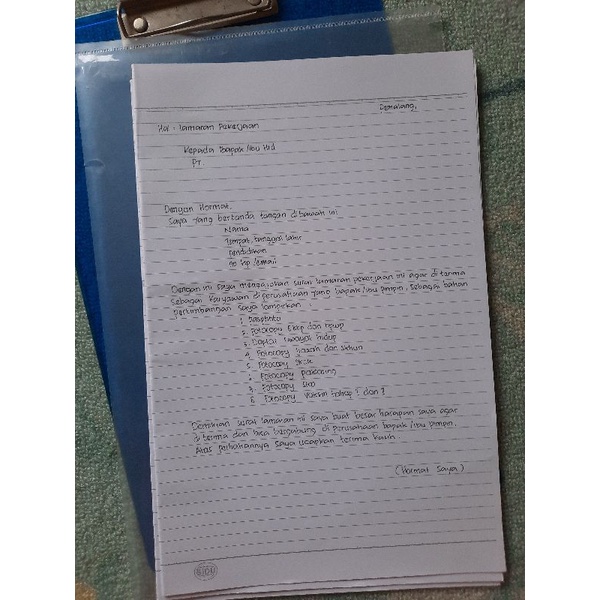 Pemalang,
Hal : lamaran Pekerjaan
Kepada Bapak /Ibu Hrd
PT
Dengan Hormat.
Saya yang bertanda tangan dibawah ini
Nama
Tempat, tanggal lahir
pendidikan
no Hp /email
Dengan ini saya mengajukan surat lamaran pekerjaan ini agar di terima
sebagai karyawan di perusahaan yang bapak/ibu pimpin, sebagai bahan
pertimbangan saya lampirkan
1. pasphoto
2. Fotocopy E ktp dan npwp
3. Daftar riwayat hidup
4. Fotocopy ijazah dan skhun
5. Fotocopy skck
6. Fotocopy
7. Fotocopy
8. Fotocopy vaksin tahap 1 dan 2
Demikian surat lamaran ini saya buat besar harapan saya agar
di terima dan bisa bergabung di perusahaan bapak /ibu pimpin.
Atas perhatiannya saya ucapkan terima kasih
(Hormat Saya)